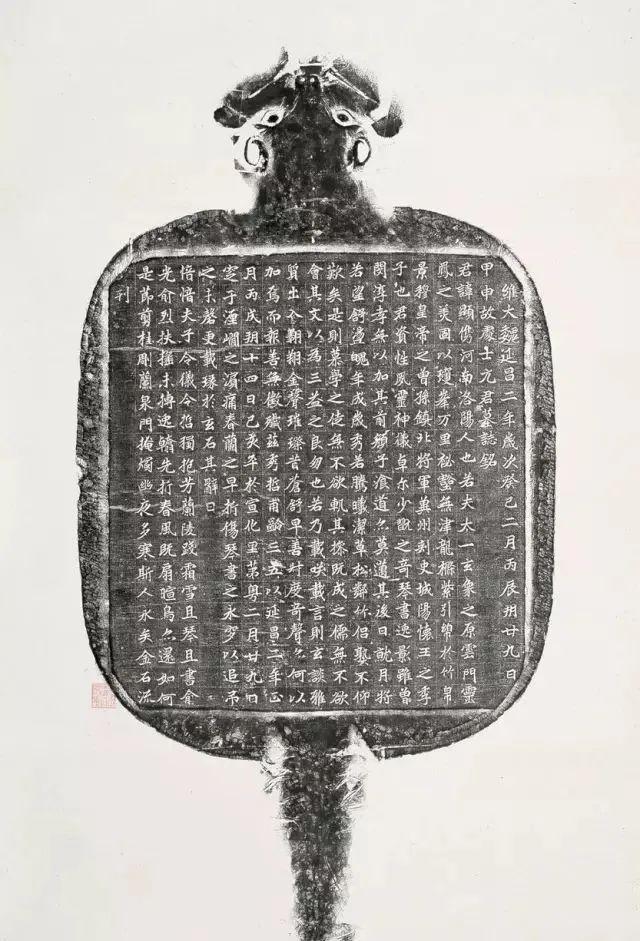 維大魏延昌二年歲次癸巳二月丙辰朔廿九日
甲申故處士元君墓誌銘
君諱顯儁河南洛陽人也若夫太一玄象之原雲門靈
鳳之美固以瓊峯万里祕壑無津龍樛紫引綿於竹帛
景穆皇帝之曾孫鎮北將軍冀州刺史城陽懷王之季
子也君資性夙靈神儀卓尒少翫之奇琴書逸影雖曾
閔淳孝無以加其前顏子湌道尒莫道其後日就月將
若望舒邊魄年成歲秀若騰曦潔草松鄰竹侶熟不仰
歎矣是則慕學之徒無不欲軌其操既成之儒無不欲
會其文以為三益之良朋也若乃載咲載言則玄談雅
質出今鞠翔金聲璀璨昔蒼舒早善叶度奇聲尒何以
加焉而報善無徵殲茲秀哲甫齡三五以延昌二年正
月丙戌朔十四日己亥卒於宣化里第粵二月廿九日
窆于瀍澗之濱痛春蘭之早折傷琴書之永穸以追弔
之未磬更載琢於玄石其辭曰
愔愔夫子令儀令哲獨抱芳蘭陵踐霜雪且琴且書俞
光俞烈扶搖未搏逸翰先折春風既扇暄鳥尒還如何
是節剪桂彫蘭泉門掩燭幽夜多寒斯人永矣金石流
刊